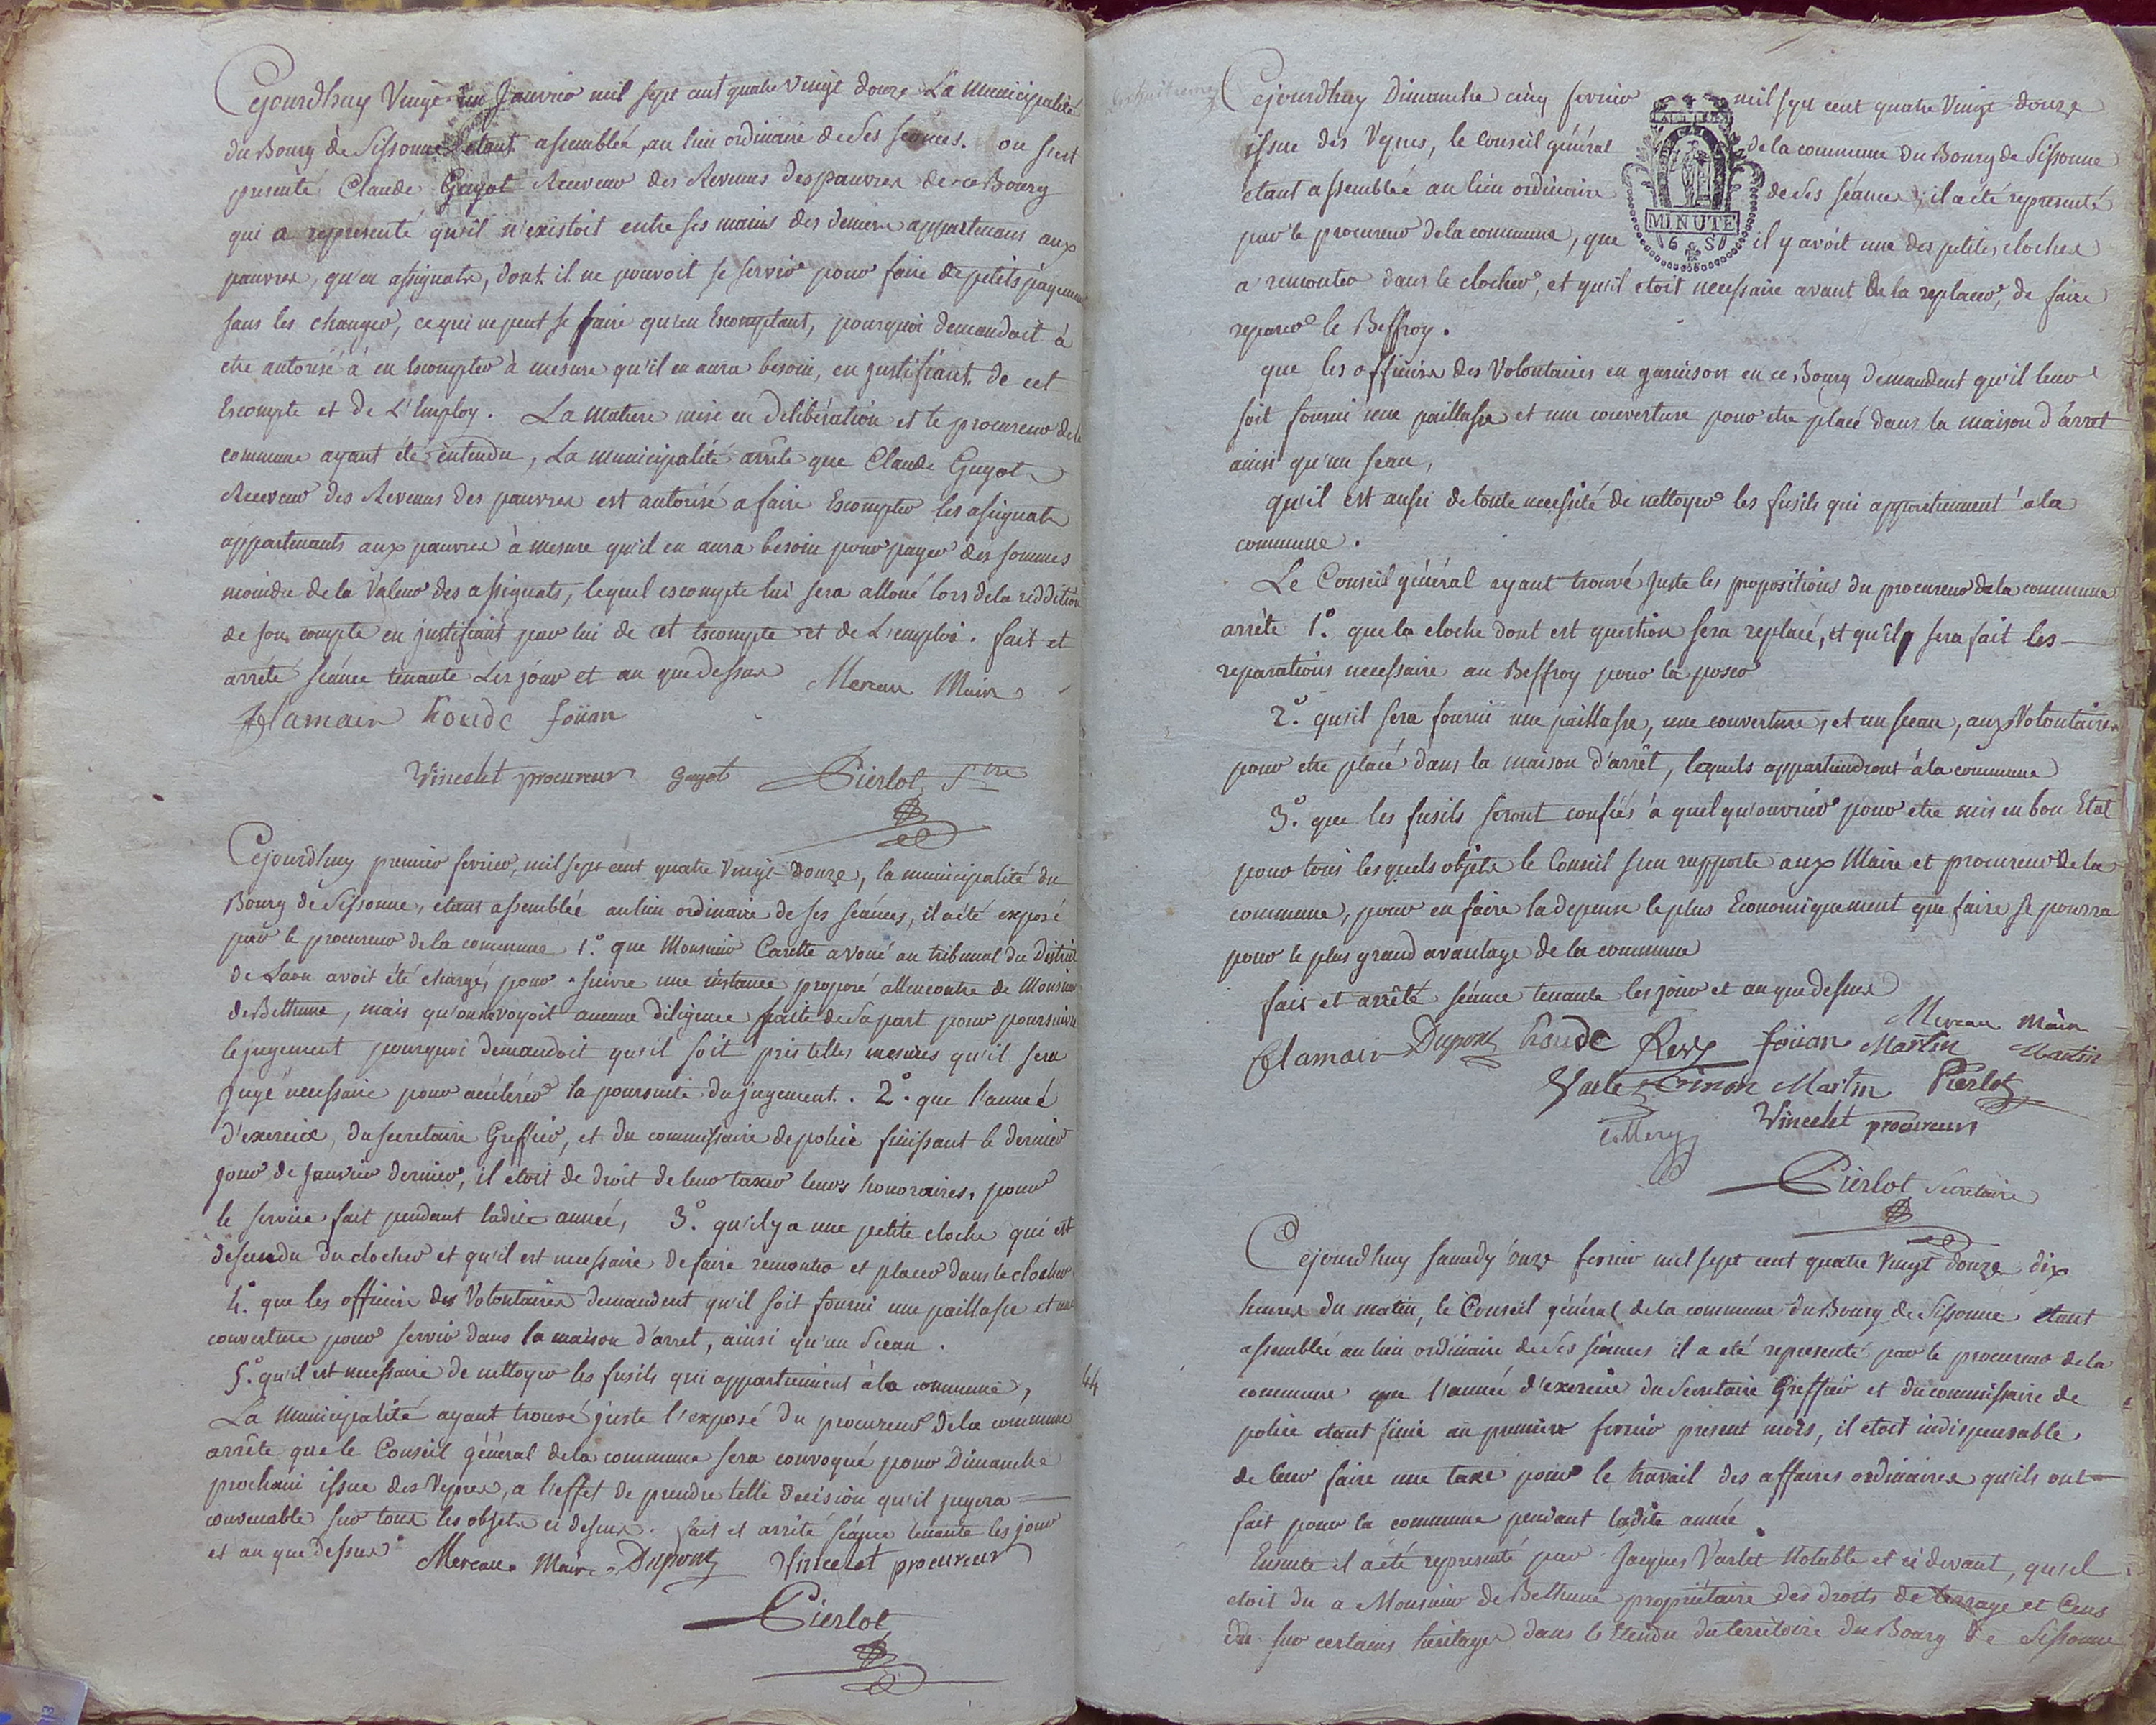 Cejourdhuy Vingt un Janvier mil sept cent quatre Vingt douze La Municipalité
du Bourg de Sissonne étant assemblée au lieu ordinaire de Ses séances. ou s'est
présenté Claude Guyot Receveur des Revenus des pauvres de ce Bourg
qui a représenté qu'il n'existoit entre ses mains des deniers appartenans aux
pauvres, qu'en assignats, dont il ne pouvoit se servir pour faire de petits payemens
sans les changer, ce qui ne peut se faire qu'en Escomptant, pourquoi demandoit à
etre autorisé à en Escompter à mesure qu'il en aura besoin, en justifiant de cet
Escompte et de L'Employ. La matiere mise en deliberation et le procureur de la
commune ayant été entendu, La municipalité arrête que Claude Guyot
Receveur des Revenus des pauvres est autorisé a faire Escompter les assignats
appartenants aux pauvres à mesure qu'il en aura besoin pour payer des sommes
moindre de la Valeur des assignats, lequel escompte lui sera alloué lors de la reddition
de son compte en justifiant par lui de cet Escompte et de L'emploi. fait et
arrêté séance tenante Les jour et an que dessus Mereau Maire
flamain houde foüan
Vincelet procureur Guyot Pierlot S.tre
Cejourdhuy premier fevrier, mil sept cent quatre Vingt douze, la municipalité du
Bourg de Sissonne, etant assemblée au lieu ordinaire de ses séances, il a été exposé
par le procureur de la commune 1.° que Monsieur Carette avoué au tribunal du District
de Laon avoit été chargé, pour suivre une instance proposé allencontre de Monsieur
de Bethune, mais qu'on ne voyoit aucune diligence faite de Sa part pour poursuivre
le jugement pourquoi demandoit qu'il soit pris telles mesures qu'il sera
jugé necessaire pour accélérer la poursuite du jugement. 2.° que l'année
d'exercice, du secretaire Greffier, et du commissaire de police finissant le dernier
jour de Janvier dernier, il etoit de droit de leur taxer leurs honoraires, pour
le service fait pendant ladite année, 3.° qu'il y a une petite cloche qui est
descendu du clocher et qu'il est necessaire de faire remonter et placer dans le clocher
4.° que les officiers des Volontaires demandent qu'il soit fourni une paillasse et une
couverture pour servir dans la maison d'arret, ainsi qu'un Sceau.
5.° qu'il est necessaire de nettoyer les fusils qui appartiennent à la commune,
La Municipalité ayant trouvé juste l'exposé du procureur de la commune
arrête que le Conseil général de la commune sera convoqué pour Dimanche
prochain issue des Vepres, a l'effet de prendre telle decision qu'il jugera
convenable sur tous les objets ci dessus. fait et arrêté séance tenante les jour
et an que dessus Mereau Maire Dupont Vincelet procureur
Pierlot
Cejourdhuy Dimanche cinq fevrier mil sept cent quatre Vingt douze
issue des Vepres, le Conseil général de la commune du Bourg de Sissonne
etant assemblée au lieu ordinaire de Ses séances, il a été representé
par le procureur de la commune, que il y avoit une des petites cloches
MINUTE
6 S
a remonter dans le clocher, et qu'il etoit necessaire avant de la replacer, de faire
reparer le Beffroy.
que les officiers des Volontaires en garnison en ce Bourg demandent qu'il leur
soit fourni une paillasse et une couverture pour etre placé dans la maison d'arret
ainsi qu'un seau,
qu'il est aussi de toute necessité de nettoyer les fusils qui appartiennent a la
commune.
Le Conseil général ayant trouvé juste les propositions du procureur de la commune
arrête 1.° que la cloche dont est question sera replacé, et qu'il sera fait les
reparations necessaire au Beffroy pour la poser
2.° qu'il sera fourni une paillasse, une couverture, et un sceau, aux Volontaires
pour etre placé dans la maison d'arrêt, lequels appartiendront à la commune
3.° que les fusils seront confiés à quelqu'ouvrier pour etre mis en bon Etat
pour tous lesquels objets le Conseil s'en rapporte aux Maire et procureur de la
commune, pour en faire la depense le plus Economiquement que faire se pourra
pour le plus grand avantage de la commune
fait et arrêté séance tenante les jour et an que dessus
Mereau Maire
flamain Dupont houde foüan Martin Martin
Simon Martin Pierlot
Vincelet procureur
Pierlot Secretaire
Cejourdhuy samedy onze fevrier mil sept cent quatre Vingt douze dix
heures du matin, le Conseil général de la commune du Bourg de Sissonne etant
assemblée au lieu ordinaire de Ses séances il a eté representé par le procureur de la
commune que l'année d'exercice du Secretaire Greffier et du commissaire de
police etant fini au premier fevrier present mois, il etoit indispensable
de leur faire une taxe pour le travail des affaires ordinaires qu'ils ont
fait pour la commune pendant ladite année.
Ensuite il a été representé par Jacques Varlet Notable et ci devant, qu'il
etoit du a Monsieur de Bethune propriétaire des droits de terrage et Cens
du sur certains heritages dans le Etendu du territoire du Bourg de Sissonne
44